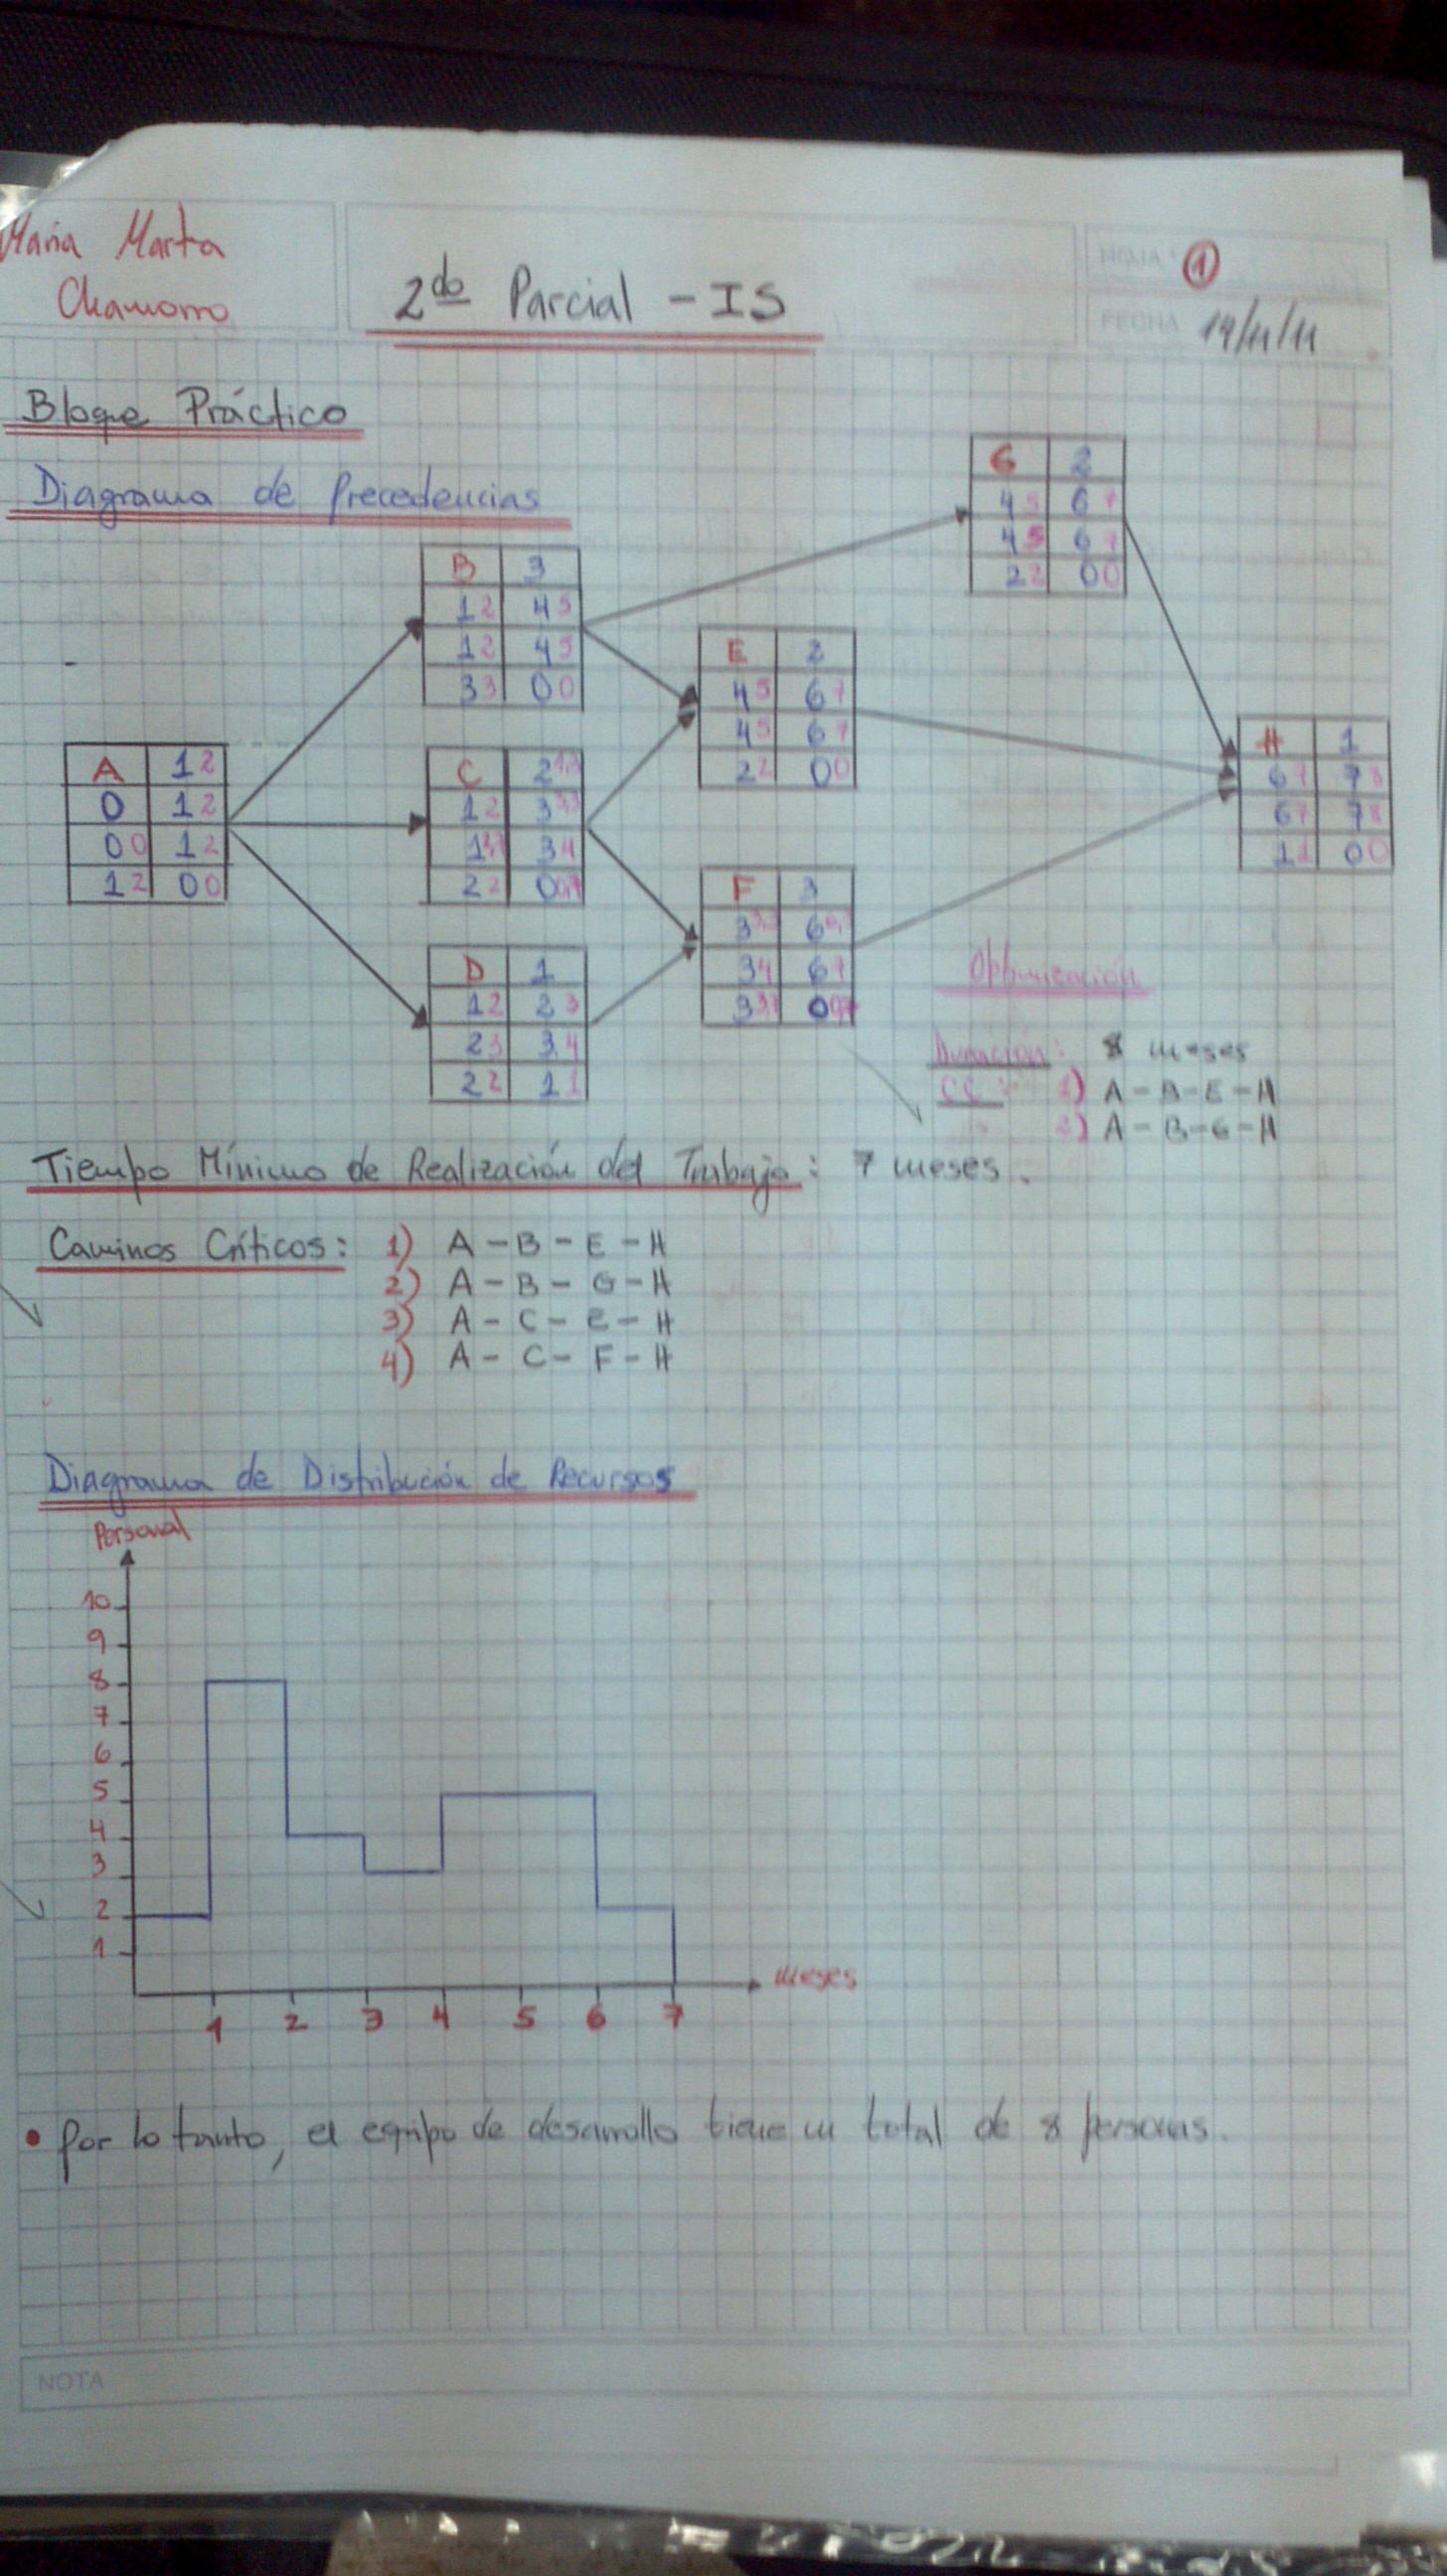 Maria Marta
Chamorro
2do Parcial - IS
HOJA: 1
FECHA 14/11/11
Bloque Práctico
Diagrama de Precedencias
G 2
4 5 6 7
4 5 6 7
2 2 0 0
B 3
1 2 4 5
1 2 4 5
3 3 0 0
E 2
4 5 6 7
4 5 6 7
2 2 0 0
A 1 2
0 1 2
0 0 1 2
1 2 0 0
C 2
1 2 3
1 3 4
2 2 0
H 1
6 7 7 8
6 7 7 8
1 1 0 0
F 3
3 6
3 4 6 7
3 0
D 1
1 2 2 3
2 3 3 4
2 2 1 1
Optimización
Duración: 8 meses
CC: 1) A - B - E - H
2) A - B - G - H
Tiempo Mínimo de Realización del Trabajo: 7 meses.
Caminos Críticos: 1) A - B - E - H
2) A - B - G - H
3) A - C - E - H
4) A - C - F - H
Diagrama de Distribución de Recursos
Personal
10
9
8
7
6
5
4
3
2
1
meses
1 2 3 4 5 6 7
• Por lo tanto, el equipo de desarrollo tiene un total de 8 personas.
NOTA